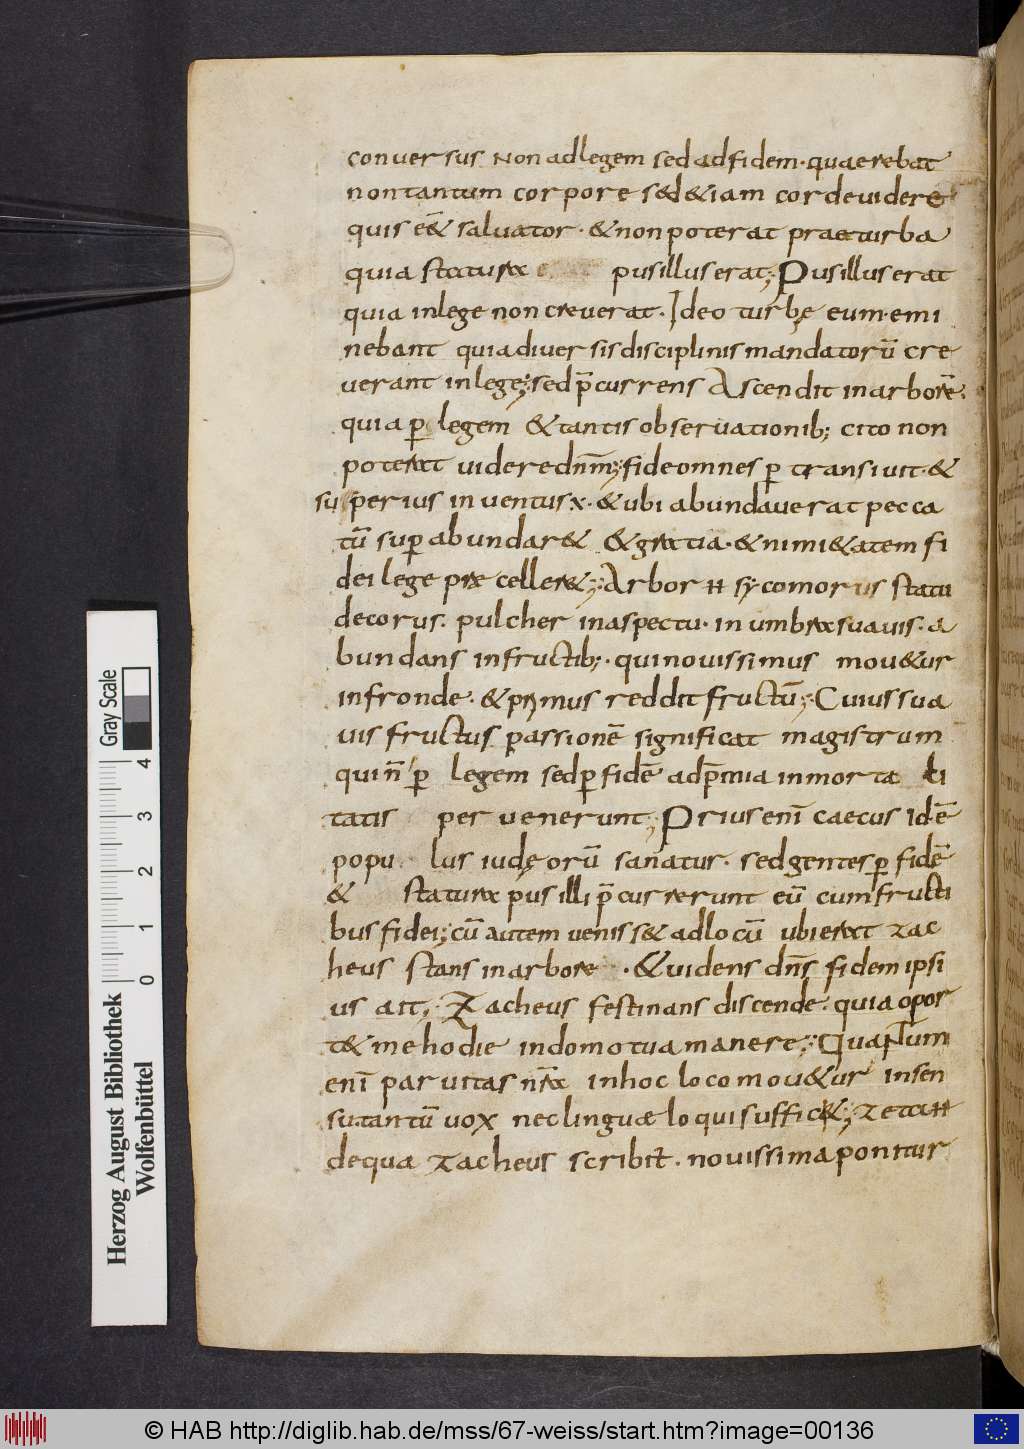 conversus Non ad legem sed ad fidem · quaerebat
non tantum corpore sed &iam corde videre
quis ē& salvator · & non poterat prae turba
quia statura pusillus erat; Pusillus erat
quia in lege non creverat · Ideo turbę eum · emi
nebant quia diversis disciplinis mandatorū cre
verant in lege; sed p̄currens Ascendit in arborē·
quia ꝑ legem & tantis observationib; cito non
poterat videre dn̄m; fide omnes ꝑ transivit · &
superius inventus · x · & ubi abundaverat pecca
tū suꝑabundar& & gratia · & nimi&atem fi
dei lege praeceller&; Arbor H sycomorus statu
decorus · pulcher in aspectu · in umbra suavis · a
bundans in fructib; · qui novissimus mov&ur
in fronde · & primus reddit fructū; Cuius sua
vis fructus passionē significat magistrum
qui n̄ ꝑ legem sed ꝑ fidē ad p̄mia inmorta li
tatis pervenerunt; Prius enī caecus Id · ē
popu lus iudęorū sanatur · sed gentes ꝑ fidē
& statura pusilli p̄currerunt eū cum fructi
bus fidei; cū autem veniss& ad locū ubi erat zac
heus stans in arbore · & videns dn̄s fidem ipsi
us ait; · Zacheus festinans discende · quia opor
t& me hodie in domo tua manere; Quantum
enī parvitas nr̄a in hoc loco mov&ur in sen
su tantū vox nec lingua loqui suffic&; Zeta H
de qua zacheus scribit · novissima ponitur
Gray Scale
0 1 2 3 4
Herzog August Bibliothek
Wolfenbüttel
© HAB http://diglib.hab.de/mss/67-weiss/start.htm?image=00136